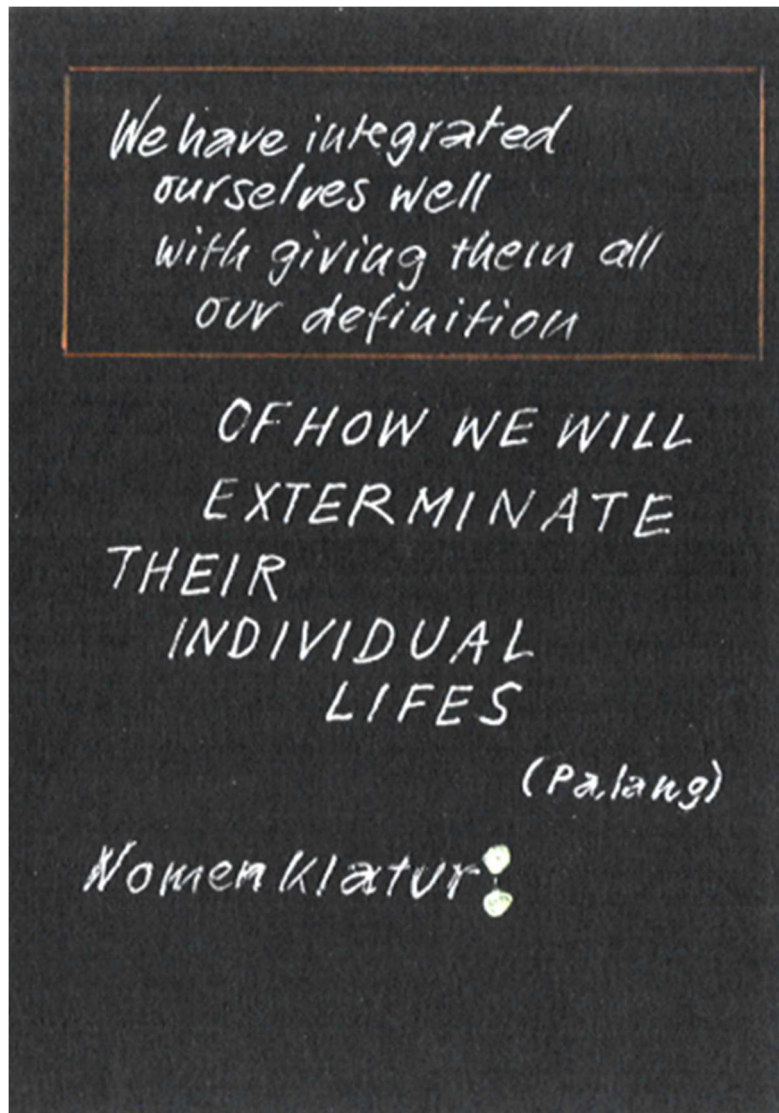 We have integrated
ourselves well
with giving them all
our definition
OF HOW WE WILL
EXTERMINATE
THEIR
INDIVIDUAL
LIFES
(Pa,lang)
Nomenklatur: